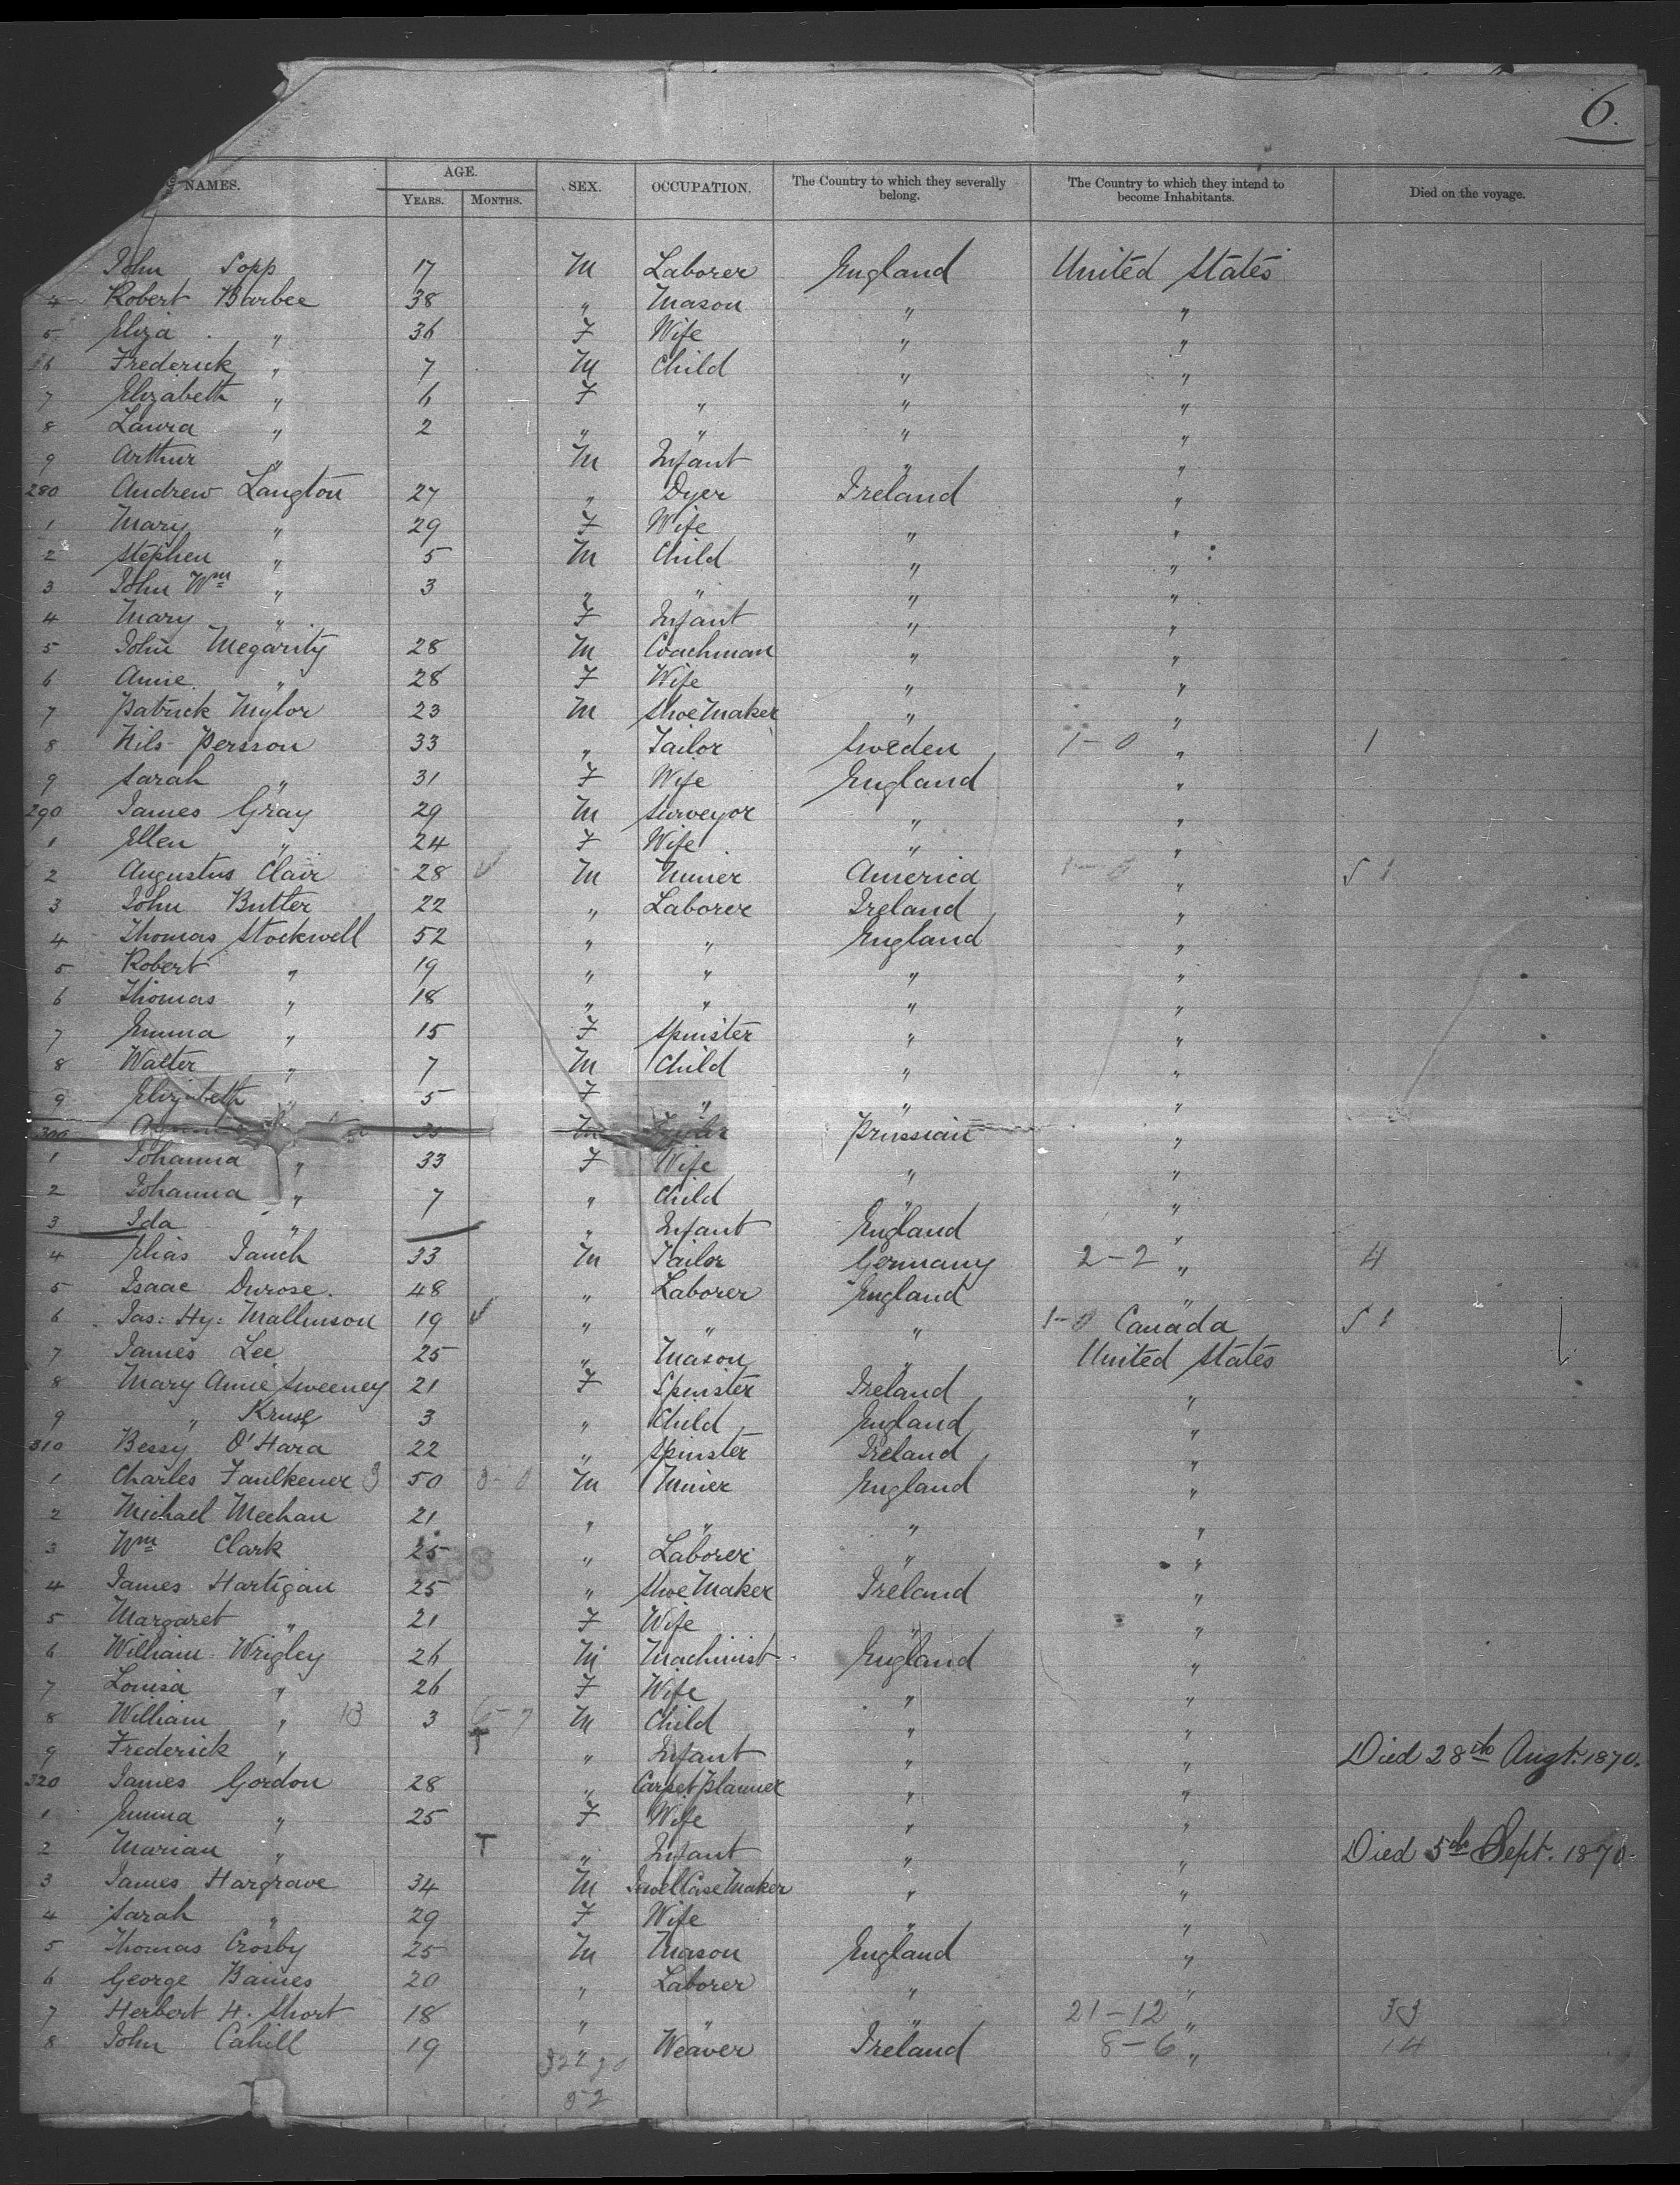 6.
NAMES. AGE. YEARS. MONTHS. SEX. OCCUPATION. The Country to which they severally belong. The Country to which they intend to become Inhabitants. Died on the voyage.
John Sopp 17 M Laborer England United States
4 Robert Barbee 38 " Mason " "
5 Eliza " 36 F Wife " "
6 Frederick " 7 M Child " "
7 Elizabeth " 6 F " " "
8 Laura " 2 " " " "
9 Arthur " M Infant " "
280 Andrew Langton 27 " Dyer Ireland "
1 Mary " 29 F Wife " "
2 Stephen " 5 M Child " "
3 John Wm " 3 " " " "
4 Mary " F Infant " "
5 John Megarity 28 M Coachman " "
6 Annie " 28 F Wife " "
7 Patrick Mylor 23 M Shoe Maker " "
8 Nils Persson 33 " Tailor Sweden 1-0 " 1
9 Sarah " 31 F Wife England "
290 James Gray 29 M Surveyor " "
1 Ellen " 24 F Wife " "
2 Augustus Clair 28 M Miner America 1-0 " 1
3 John Butler 22 " Laborer Ireland "
4 Thomas Stockwell 52 " " England "
5 Robert " 19 " " " "
6 Thomas " 18 " " " "
7 Emma " 15 F Spinster " "
8 Walter " 7 M Child " "
9 Elizabeth " 5 F " " "
300 M Prussian "
1 Johanna " 33 F Wife " "
2 Johanna " 7 " Child " "
3 Ida " " Infant England "
4 Elias Jauch 33 M Tailor Germany 2-2 " 4
5 Isaac Durose. 48 " Laborer England "
6 Jas: Hy: Mallinson 19 " " " 1-0 Canada 1
7 James Lee 25 " Mason " United States
8 Mary Annie Sweeney 21 F Spinster Ireland "
9 " Kruse 3 " Child England "
310 Bessy O'Hara 22 " Spinster Ireland "
1 Charles Faulkener 3 50 3-0 M Miner England "
2 Michael Meehan 21 " " " "
3 Wm Clark 25 " Laborer " "
4 James Hartigan 25 " Shoe Maker Ireland "
5 Margaret " 21 F Wife " "
6 William Wrigley 26 M Machinist England "
7 Louisa " 26 F Wife " "
8 William " 13 3 6-7 M Child " "
9 Frederick " T " Infant " " Died 28th Augt. 1870.
320 James Gordon 28 " Carpet Planner " "
1 Emma " 25 F Wife " "
2 Marian " T " Infant " " Died 5th Sept. 1870.
3 James Hargrave 34 M Jewel Case Maker " "
4 Sarah " 29 F Wife " "
5 Thomas Crosby 25 M Mason England "
6 George Baines 20 " Laborer " "
7 Herbert H. Short 18 " " " 21-12 " 33
8 John Cahill 19 " Weaver Ireland 8-6 " 14
52